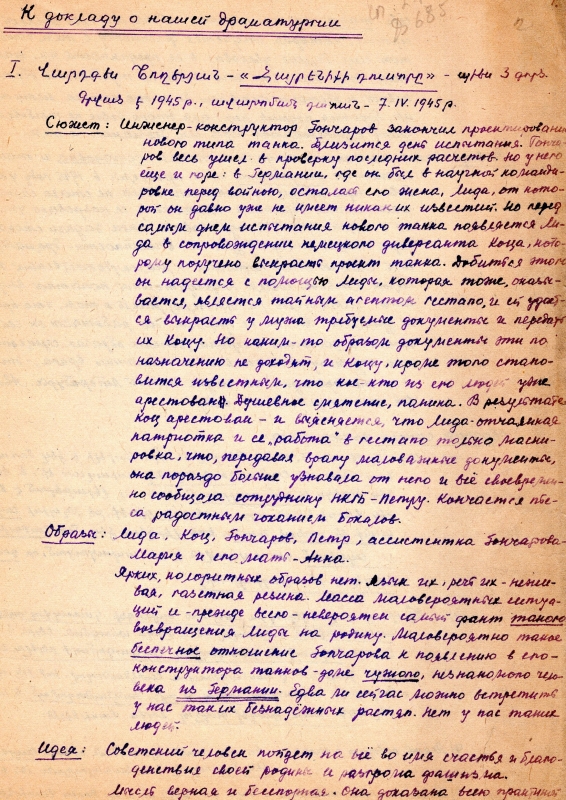 К докладу о нашей драматургии
2
I. «Հայրենիքի
1945 г., 7.IV.1945 р.
Сюжет: Инженер-конструктор Гончаров закончил проектирование
нового типа танка. Близится день испытания. Гонча-
ров весь ушел в проверку последних расчетов. Но у него
еще и горе: в Германии, где он был в научной команди-
ровке перед войною, осталась его жена, Лида, от кото-
рой он давно уже не имеет никаких известий. Но перед
самым днем испытания нового танка появляется Ли-
да в сопровождении немецкого диверсанта Коца, кото-
рому поручено выкрасть проект танка. Добиться этого
он надеется с помощью Лиды, которая тоже, оказы-
вается, является тайным агентом гестапо, и ей удает-
ся выкрасть у мужа требуемые документы и передать
их Коцу. Но каким-то образом документы эти по
назначению не доходят, и Коцу, кроме того стано-
вится известным, что кое-кто из его людей уже
арестован. Душевное смятение, паника. В результате
Коц арестован - и выясняется, что Лида - отчаянная
патриотка и её „работа" в гестапо только маски-
ровка, что, передавая врагу маловажные документы,
она гораздо больше узнавала от него и всё своевремен-
но сообщала сотруднику НКГБ - Петру. Кончается пье-
са радостным чоканием бокалов.
Образы: Лида, Коц, Гончаров, Петр, ассистентка Гончарова -
Мария и его мать - Анна.
Ярких, колоритных образов нет. Язык их, речь их - нежи-
вая, газетная резина. Масса маловероятных ситуа-
ций и - прежде всего - невероятен самый факт такого
возвращения Лиды на родину. Маловероятно такое
беспечное отношение Гончарова к появлению в его -
конструктора танков - доме чужого, незнакомого чело-
века из Германии. Едва ли сейчас можно встретить
у нас таких безнадёжных растяп. Нет у нас таких
людей.
Идея: Советский человек пойдет на всё во имя счастья и благо-
денствия своей родины и разгрома фашизма.
Мысль верная и бесспорная. Она доказана всею практикой